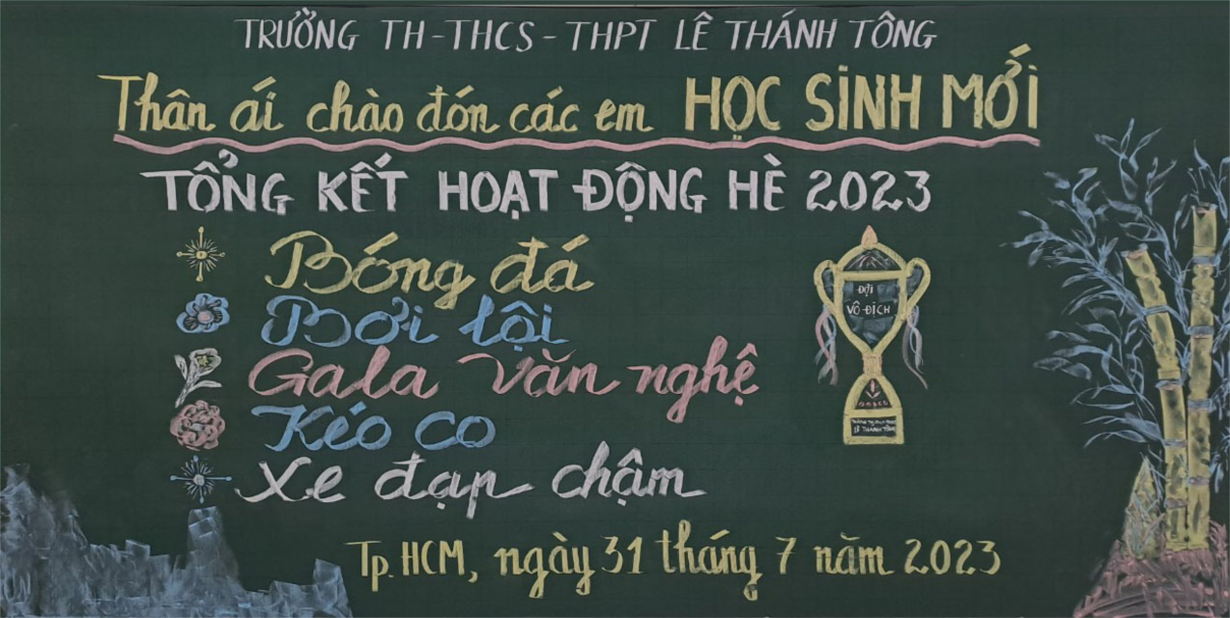 TRƯỜNG TH-THCS-THPT LÊ THÁNH TÔNG
Thân ái chào đón các em HỌC SINH MỚI
TỔNG KẾT HOẠT ĐỘNG HÈ 2023
Bóng đá
Bơi lội
Gala văn nghệ
Kéo co
Xe đạp chậm
ĐỘI
VÔ ĐỊCH
LÊ THÁNH TÔNG
Tp. HCM, ngày 31 tháng 7 năm 2023